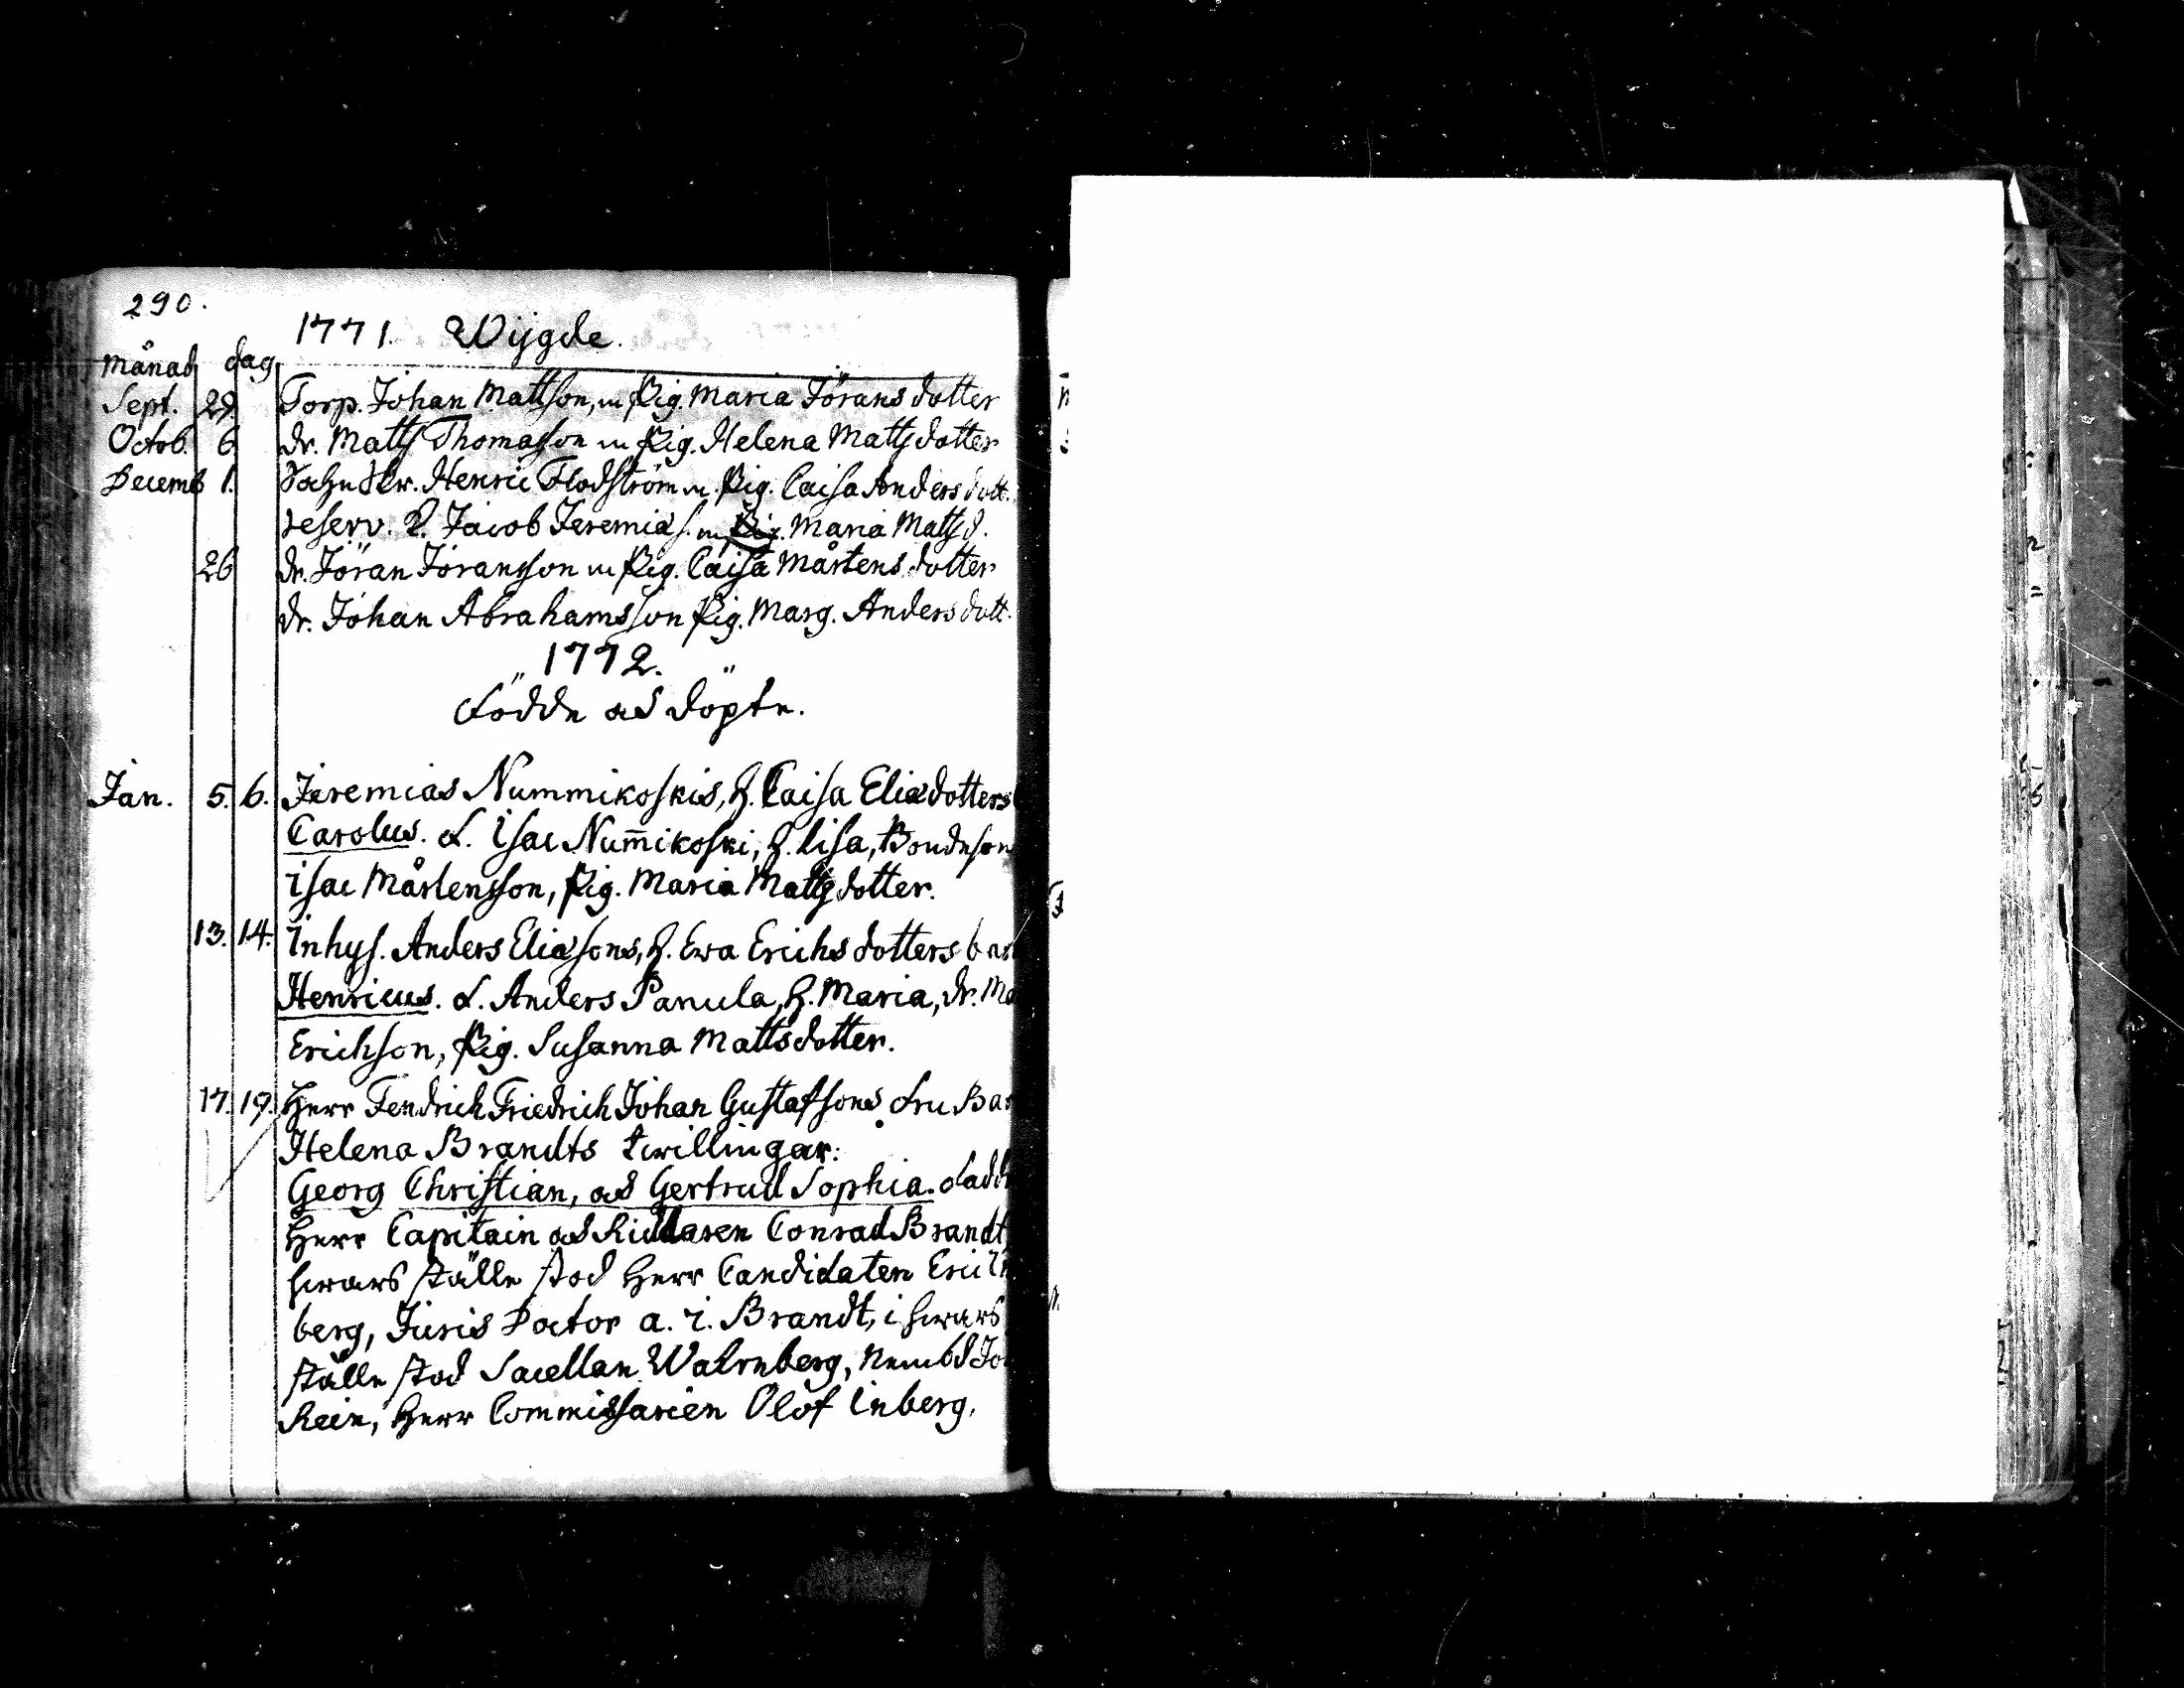 290.
1771. Wijgde.
Månad dag
Sept. 29. Torp. Johan Mattson, m Pig. Maria Jörans dotter
Octob. 6 dr. Matts Thomasson m Pig. Helena Mattsdotter
Decemb 1. Henric Flodström m. Pig. Caisa Anders dott.
reserv. Jacob Jeremias. m Pig. Maria Matts d.
26 dr. Jöran Joransson m Pig. Caisa Mårtens dotter
dr. Johan Abrahamsson Pig. Marg. Anders dott.
1772.
Födde och döpte.
Jan. 5. 6. Jeremias Nummikoskis, h. Caisa Eliædotters
Carolus. f. Isac Num̄ikoski, h. Lisa, Bondeson
Isac Mårtensson, Pig. Maria Mattsdotter.
13. 14. Inhys. Anders Eliæsons, h. Ewa Erichs dotters
Henricus. f. Anders Panula, h. Maria, dr.
Erichson, Pig. Susanna Mattsdotter.
17. 19. Herr Fendrich Friedrich Johan Gustafsons fru
Helena Brandts twillingar:
Georg Christian, och Gertrud Sophia.
Herr Capitain och Riddaren Conrad Brandt
hwars ställe stod Herr Candidaten
berg, Juris Doctor a. i. Brandt, i hwars
ställe stod Sacellan Walrnberg,
Rein, Herr Commissarien Olof Inberg.